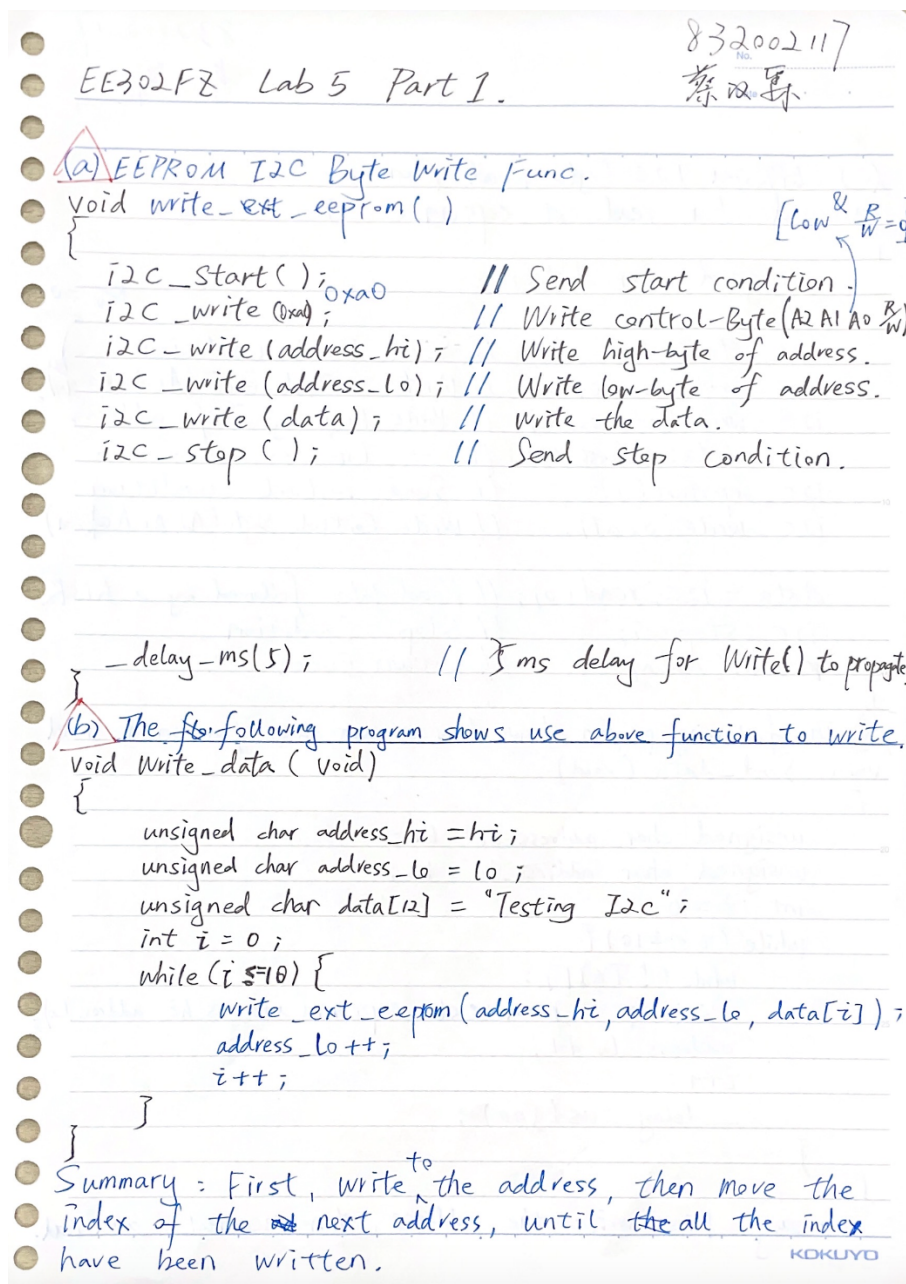 832002117
No.
EE302FZ Lab 5 Part 1.
蔡汉
(a) EEPROM I2C Byte Write Func.
void write_ext_eeprom( )
[Low & R/W=0]
{
i2c_start( ); // Send start condition.
0xa0
i2c_write(0xa0); // Write control-Byte(A2 A1 A0 R/W)
i2c_write(address_hi); // Write high-byte of address.
i2c_write(address_lo); // Write low-byte of address.
i2c_write(data); // write the data.
i2c_stop( ); // Send stop condition.
_delay_ms(5); // 5ms delay for Write() to propagate
}
(b) The following program shows use above function to write.
void Write_data(void)
{
unsigned char address_hi = hi;
unsigned char address_lo = lo;
unsigned char data[12] = "Testing I2C";
int i = 0;
while(i <=10) {
write_ext_eeprom(address_hi, address_lo, data[i]);
address_lo++;
i++;
}
}
Summary: First, write to the address, then move the
index of the next address, until all the index
have been written.
KOKUYO